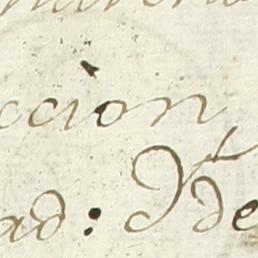 ccion
ad: Y de